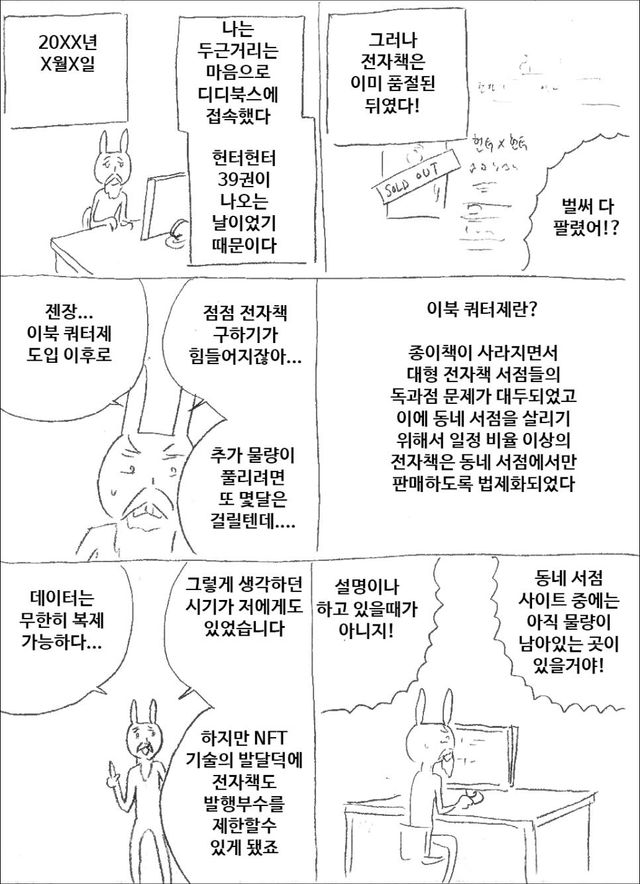 20XX년
X월X일
나는
두근거리는
마음으로
디디북스에
접속했다
헌터헌터
39권이
나오는
날이었기
때문이다
그러나
전자책은
이미 품절된
뒤였다!
헌터X헌터
SOLD OUT
벌써 다
팔렸어!?
젠장...
이북 쿼터제
도입 이후로
점점 전자책
구하기가
힘들어지잖아...
추가 물량이
풀리려면
또 몇달은
걸릴텐데....
이북 쿼터제란?
종이책이 사라지면서
대형 전자책 서점들의
독과점 문제가 대두되었고
이에 동네 서점을 살리기
위해서 일정 비율 이상의
전자책은 동네 서점에서만
판매하도록 법제화되었다
데이터는
무한히 복제
가능하다...
그렇게 생각하던
시기가 저에게도
있었습니다
하지만 NFT
기술의 발달덕에
전자책도
발행부수를
제한할수
있게 됐죠
설명이나
하고 있을때가
아니지!
동네 서점
사이트 중에는
아직 물량이
남아있는 곳이
있을거야!